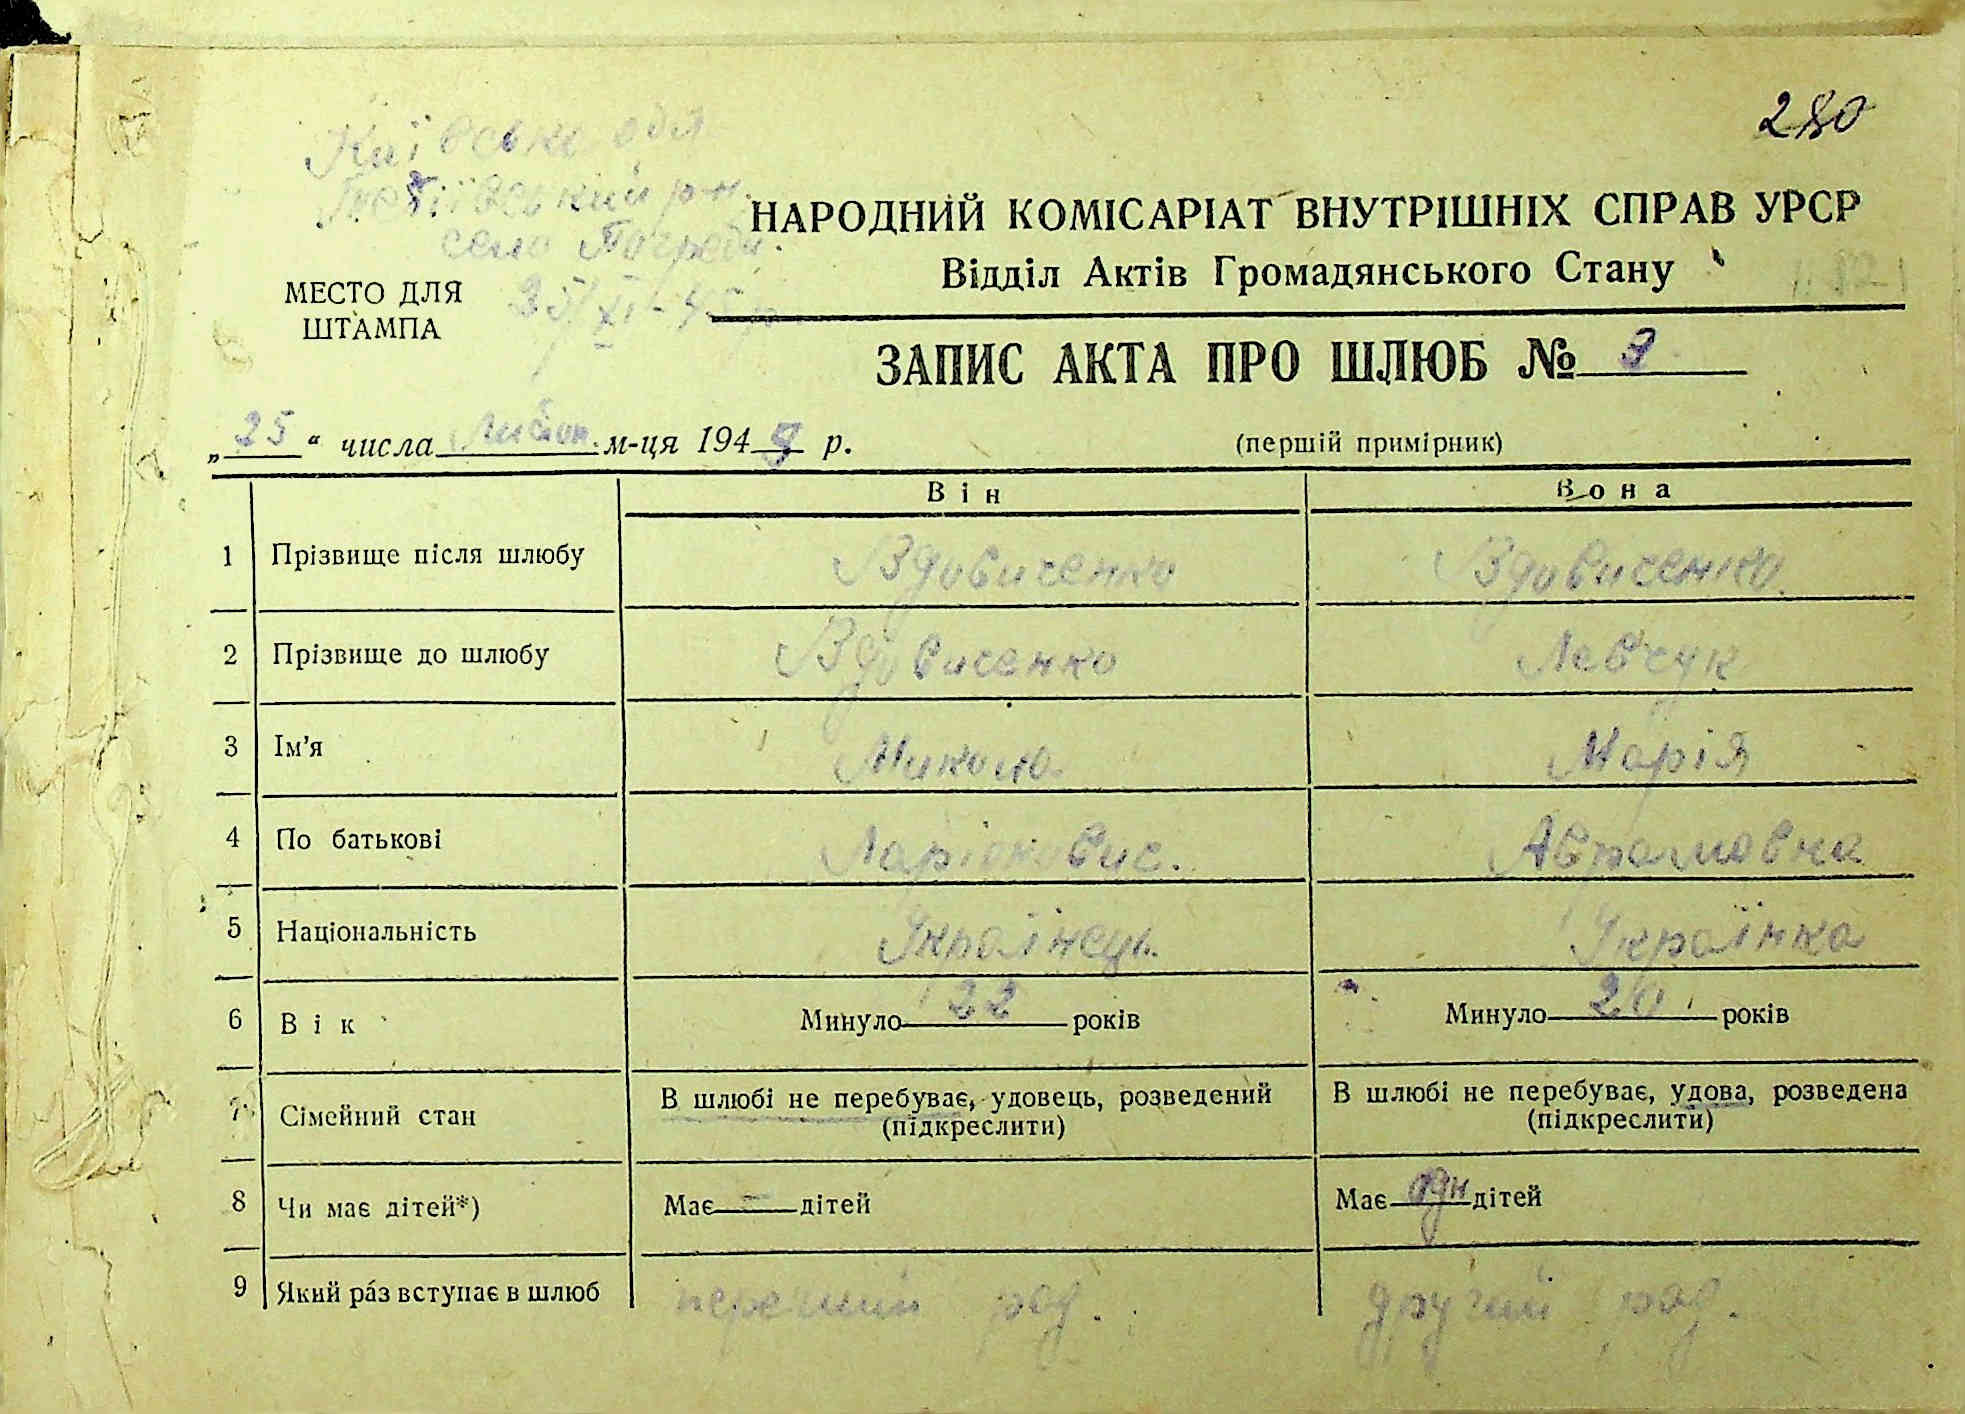 280
Київське обл
Тетіївський р-н.
село Погреби.
25/XI-45 р
НАРОДНИЙ КОМІСАРІАТ ВНУТРІШНІХ СПРАВ УРСР
Відділ Актів Громадянського Стану
МЕСТО ДЛЯ
ШТАМПА
ЗАПИС АКТА ПРО ШЛЮБ №
„25“ числа Листоп. м-ця 194 р.
(першій примірник)
Він Вона
1 Прізвище після шлюбу Вдовиченко Вдовиченко
2 Прізвище до шлюбу Вдовиченко Левчук
3 Ім’я Микола Марія
4 По батькові Ларіонович. Аврамовна
5 Національність Українець Українка
6 Вік Минуло 22 років Минуло 20 років
7 Сімейний стан В шлюбі не перебуває, удовець, розведений В шлюбі не перебуває, удова, розведена
(підкреслити) (підкреслити)
8 Чи має дітей*) Має — дітей Має одн дітей
9 Який раз вступає в шлюб перший раз. другий раз.